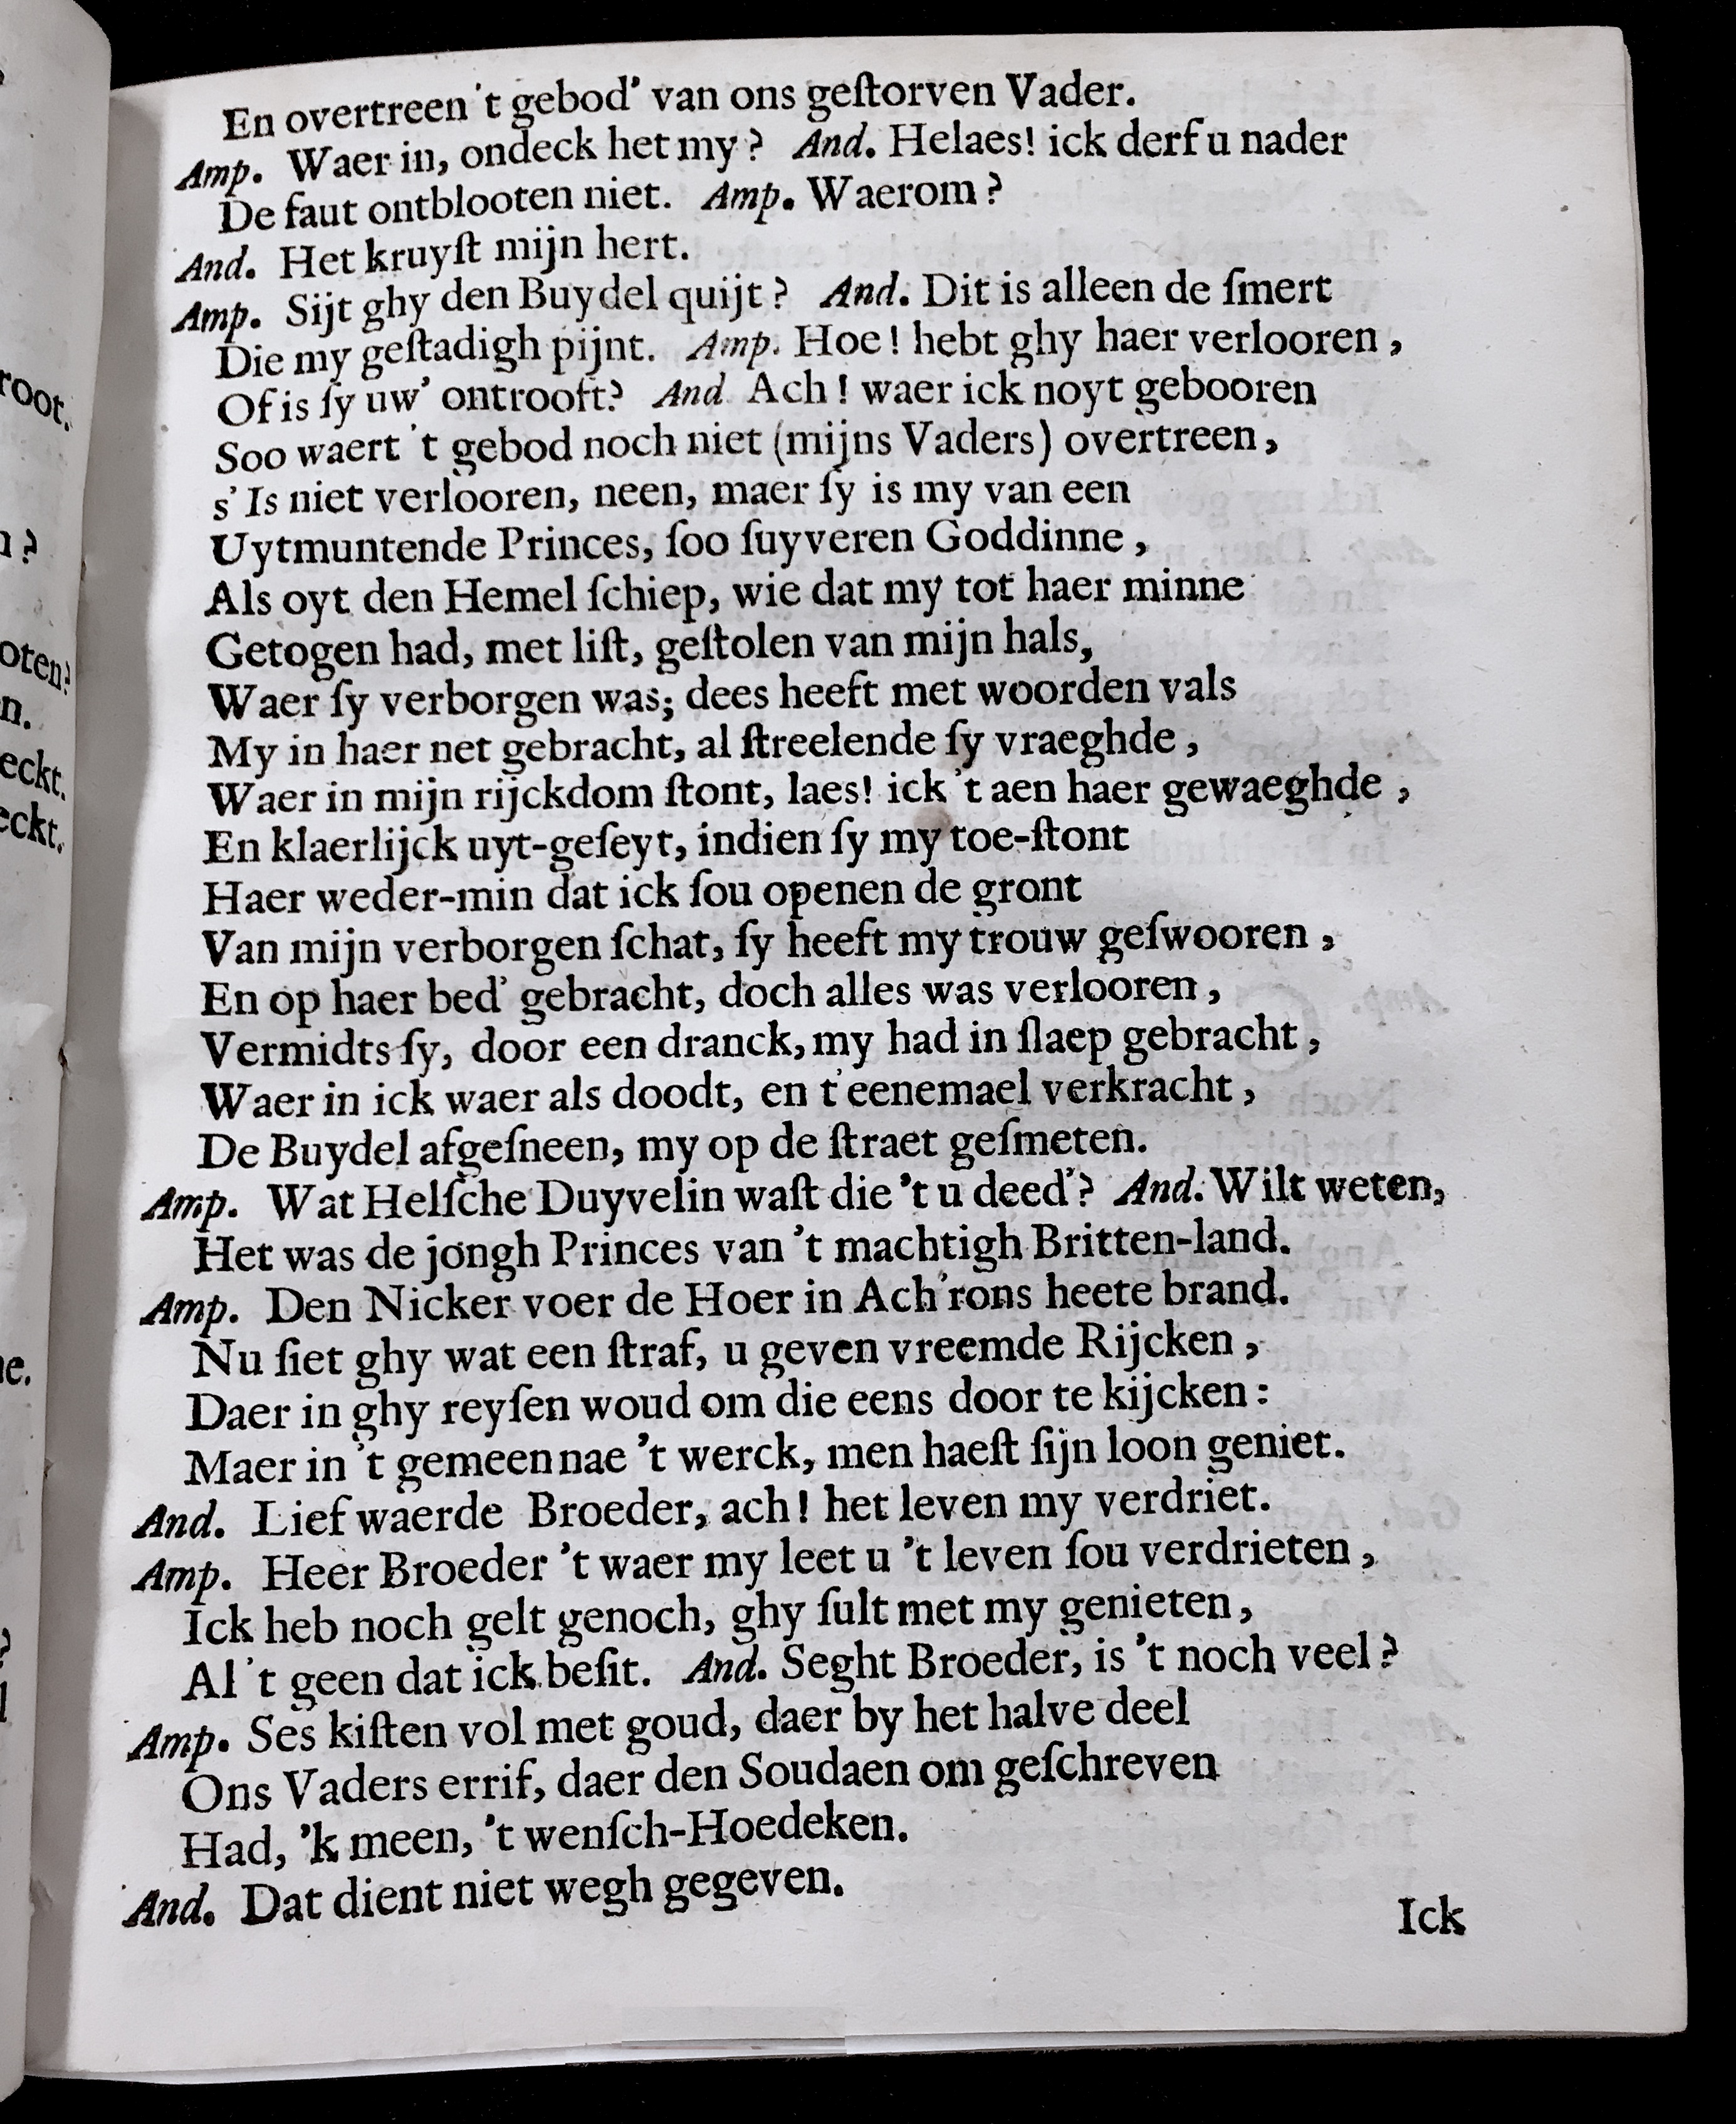 En overtreen 't gebod' van ons geſtorven Vader.
Amp. Waer in, ondeck het my? And. Helaes! ick derf u nader
De faut ontblooten niet. Amp. Waerom?
And. Het kruyſt mijn hert.
Amp. Sijt ghy den Buydel quijt? And. Dit is alleen de ſmert
Die my geſtadigh pijnt. Amp. Hoe! hebt ghy haer verlooren,
Of is ſy uw' ontrooft? And Ach! waer ick noyt gebooren
Soo waert 't gebod noch niet (mijns Vaders) overtreen,
s' Is niet verlooren, neen, maer ſy is my van een
Uytmuntende Princes, ſoo ſuyveren Goddinne,
Als oyt den Hemel ſchiep, wie dat my tot haer minne
Getogen had, met liſt, geſtolen van mijn hals,
Waer ſy verborgen was; dees heeft met woorden vals
My in haer net gebracht, al ſtreelende ſy vraeghde,
Waer in mijn rijckdom ſtont, laes! ick 't aen haer gewaeghde,
En klaerlijck uyt-geſeyt, indien ſy my toe-ſtont
Haer weder-min dat ick ſou openen de gront
Van mijn verborgen ſchat, ſy heeft my trouw geſwooren,
En op haer bed' gebracht, doch alles was verlooren,
Vermidts ſy, door een dranck, my had in ſlaep gebracht,
Waer in ick waer als doodt, en t'eenemael verkracht,
De Buydel afgeſneen, my op de ſtraet geſmeten.
Amp. Wat Helſche Duyvelin waſt die 't u deed'? And. Wilt weten,
Het was de jongh Princes van 't machtigh Britten-land.
Amp. Den Nicker voer de Hoer in Ach'rons heete brand.
Nu ſiet ghy wat een ſtraf, u geven vreemde Rijcken,
Daer in ghy reyſen woud om die eens door te kijcken:
Maer in 't gemeen nae 't werck, men haeſt ſijn loon geniet.
And. Lief waerde Broeder, ach! het leven my verdriet.
Amp. Heer Broeder 't waer my leet u 't leven ſou verdrieten,
Ick heb noch gelt genoch, ghy ſult met my genieten,
Al 't geen dat ick beſit. And. Seght Broeder, is 't noch veel?
Amp. Ses kiſten vol met goud, daer by het halve deel
Ons Vaders errif, daer den Soudaen om geſchreven
Had, 'k meen, 't wenſch-Hoedeken.
And. Dat dient niet wegh gegeven.
Ick